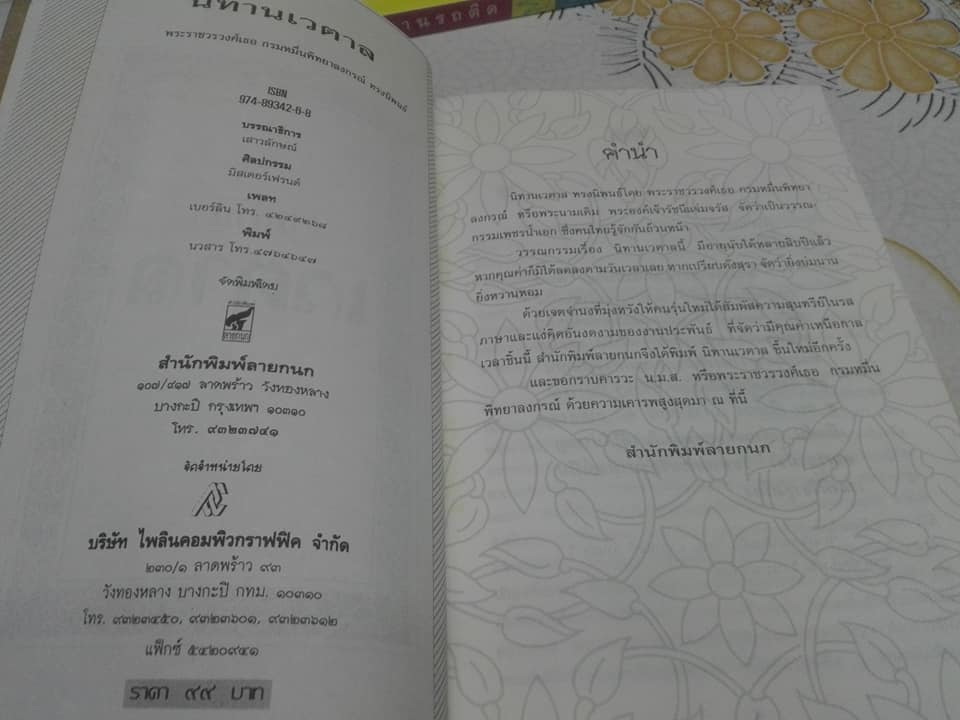 านรถติด
นิทานเวตาล
พระราชวรวงศ์เธอ กรมหมื่นพิทยาลงกรณ์ ทรงนิพนธ์
ISBN
974-89342-6-8
บรรณาธิการ
เสาวลักษณ์
ศิลปกรรม
มิสเตอร์เฟรนด์
เพลท
เบอร์ลิน โทร. ๔๒๔๙๒๖๘
พิมพ์
นวสาร โทร.๔๗๖๔๖๔๗
จัดพิมพ์โดย
ลายกนก
สำนักพิมพ์ลายกนก
๑๐๗/๙๑๗ ลาดพร้าว วังทองหลาง
บางกะปิ กรุงเทพฯ ๑๐๓๑๐
โทร. ๙๓๒๓๗๔๑
จัดจำหน่ายโดย
บริษัท ไพลินคอมพิวกราฟฟิค จำกัด
๒๓๐/๑ ลาดพร้าว ๙๓
วังทองหลาง บางกะปิ กทม. ๑๐๓๑๐
โทร. ๙๓๒๓๔๕๐, ๙๓๒๓๖๐๑, ๙๓๒๓๖๑๒
แฟ็กซ์ ๕๔๒๐๙๔๑
ราคา ๙๙ บาท
คำนำ
นิทานเวตาล ทรงนิพนธ์โดย พระราชวรวงศ์เธอ กรมหมื่นพิทยา
ลงกรณ์ หรือพระนามเดิม พระองค์เจ้ารัชนีแจ่มจรัส จัดว่าเป็นวรรณ-
กรรมเพชรน้ำเอก ซึ่งคนไทยรู้จักกันถ้วนหน้า
วรรณกรรมเรื่อง นิทานเวตาลนี้ มีอายุนับได้หลายสิบปีแล้ว
หากคุณค่าก็มิได้ลดลงตามวันเวลาเลย หากเปรียบดังสุรา จัดว่ายิ่งบ่มนาน
ยิ่งหวานหอม
ด้วยเจตจำนงที่มุ่งหวังให้คนรุ่นใหม่ได้สัมผัสความสุนทรีย์ในรส
ภาษาและแง่คิดอันงดงามของงานประพันธ์ ที่จัดว่ามีคุณค่าเหนือกาล
เวลาชิ้นนี้ สำนักพิมพ์ลายกนกจึงได้พิมพ์ นิทานเวตาล ขึ้นใหม่อีกครั้ง
และขอกราบคารวะ น.ม.ส. หรือพระราชวรวงศ์เธอ กรมหมื่น
พิทยาลงกรณ์ ด้วยความเคารพสูงสุดมา ณ ที่นี้
สำนักพิมพ์ลายกนก